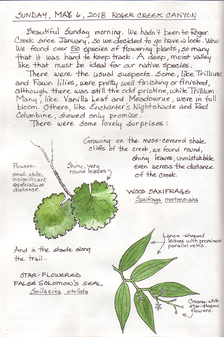 SUNDAY, MAY 6, 2018 ROGER CREEK CANYON
Beautiful Sunday morning. We hadn't been to Roger
Creek since January, so we decided to go have a look. Wow!
We found over 50 species of flowering plants, so many
that it was hard to keep track. A deep, moist valley
like that must be ideal for our native species.
There were the usual suspects. Some, like Trillium
and Fawn lilies, were pretty well finishing or finished,
although there was still the odd pristine, white Trillium.
Many, like Vanilla Leaf and Meadowrue, were in full
bloom. Others, like Enchanter's Nightshade and Red
Columbine, showed only promise.
There were some lovely surprises:
Growing on the moss-covered shale
cliffs of the creek, we found round,
shiny leaves, unmistakable
even across the distance
of the creek.
Flowers:
small, white,
insignificant
especially at
distance.
Shiny, very
round leaves
WOOD SAXIFRAGE
Saxifraga mertensiana
And in the shade along
the trail.
Lance-shaped
leaves with prominent
parallel veins.
STAR-FLOWERED
FALSE SOLOMON'S SEAL
Smilacina stellata
Creamy-white
star-shaped
flowers.